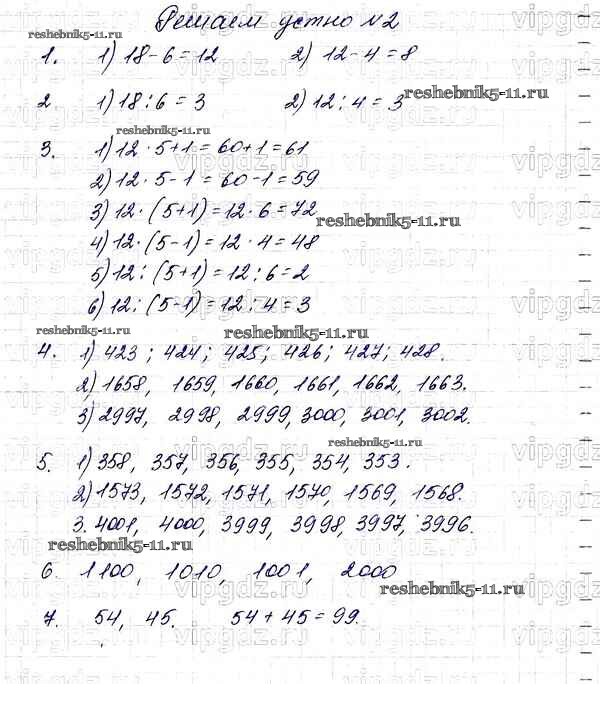 Решаем устно №2
reshebnik5-11.ru
1. 1) 18-6=12 2) 12-4=8
2 1) 18:6=3 2) 12:4=3 reshebnik5-11.ru
reshebnik5-11.ru
3. 1) 12·5+1=60+1=61
2) 12·5-1=60-1=59
3) 12·(5+1)=12·6=72
reshebnik5-11.ru
4) 12·(5-1)=12·4=48
5) 12:(5+1)=12:6=2
6) 12:(5-1)=12:4=3
reshebnik5-11.ru reshebnik5-11.ru
4. 1) 423; 424; 425; 426; 427; 428.
2) 1658, 1659, 1660, 1661, 1662, 1663.
3) 2997, 2998, 2999, 3000, 3001, 3002.
reshebnik5-11.ru
5. 1) 358, 357, 356, 355, 354, 353.
2) 1573, 1572, 1571, 1570, 1569, 1568.
3. 4001, 4000, 3999, 3998, 3997, 3996.
reshebnik5-11.ru
6. 1100, 1010, 1001, 2000
reshebnik5-11.ru
7. 54, 45. 54+45=99.